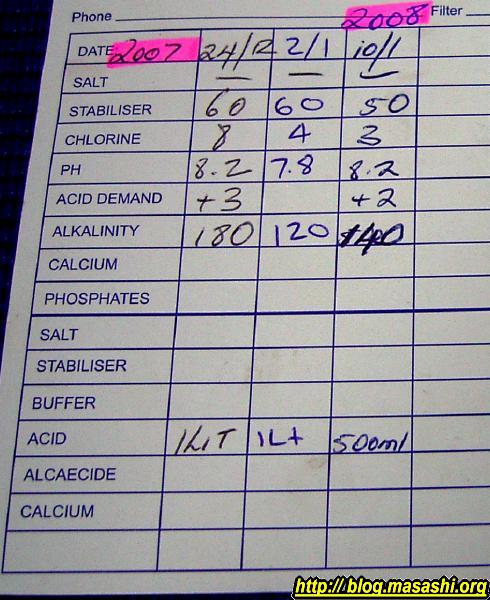 Phone 2008 Filter
DATE 2007 24/12 2/1 10/1
SALT — — —
STABILISER 60 60 50
CHLORINE 8 4 3
PH 8.2 7.8 8.2
ACID DEMAND +3 +2
ALKALINITY 180 120 140
CALCIUM
PHOSPHATES
SALT
STABILISER
BUFFER
ACID 1LIT 1Lt 500ml
ALCAECIDE
CALCIUM
http://blog.masashi.org